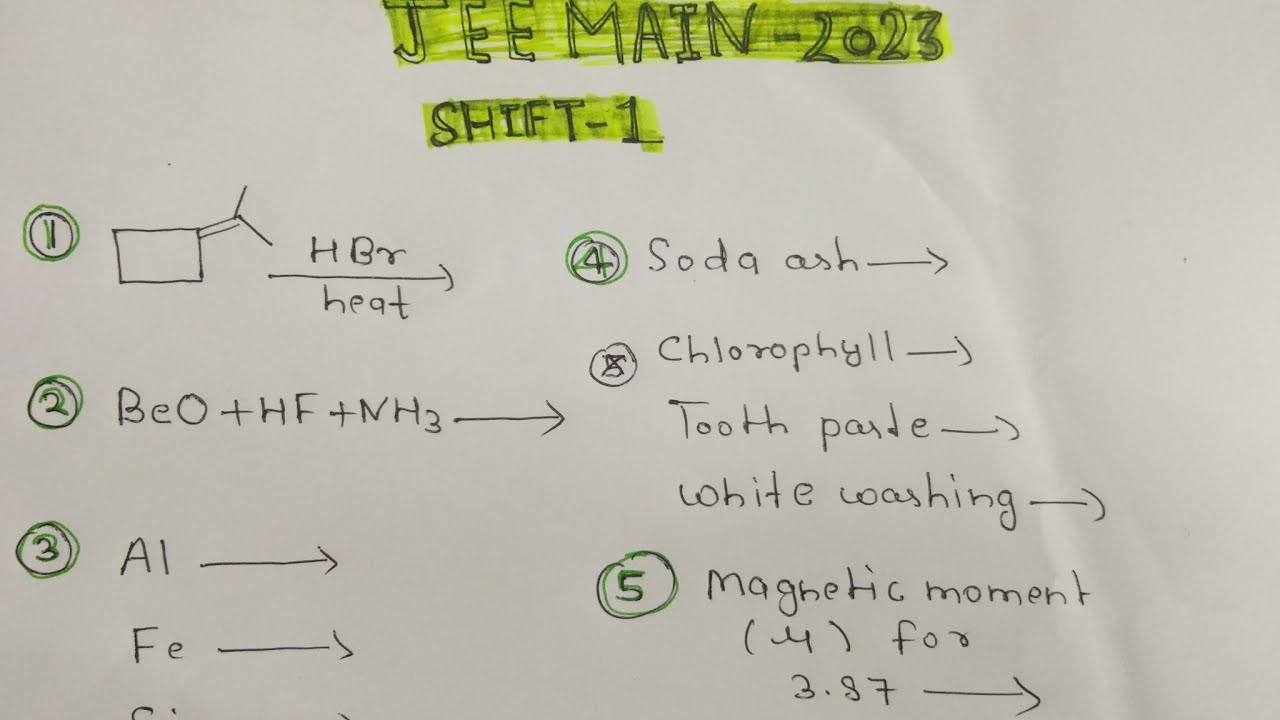 JEE MAIN-2023
SHIFT-1
① HBr
heat
② BeO+HF+NH₃ →
③ Al →
Fe →
④ Soda ash →
Chlorophyll →
Tooth paste →
White washing →
⑤ Magnetic moment
(μ) for
3.87 →